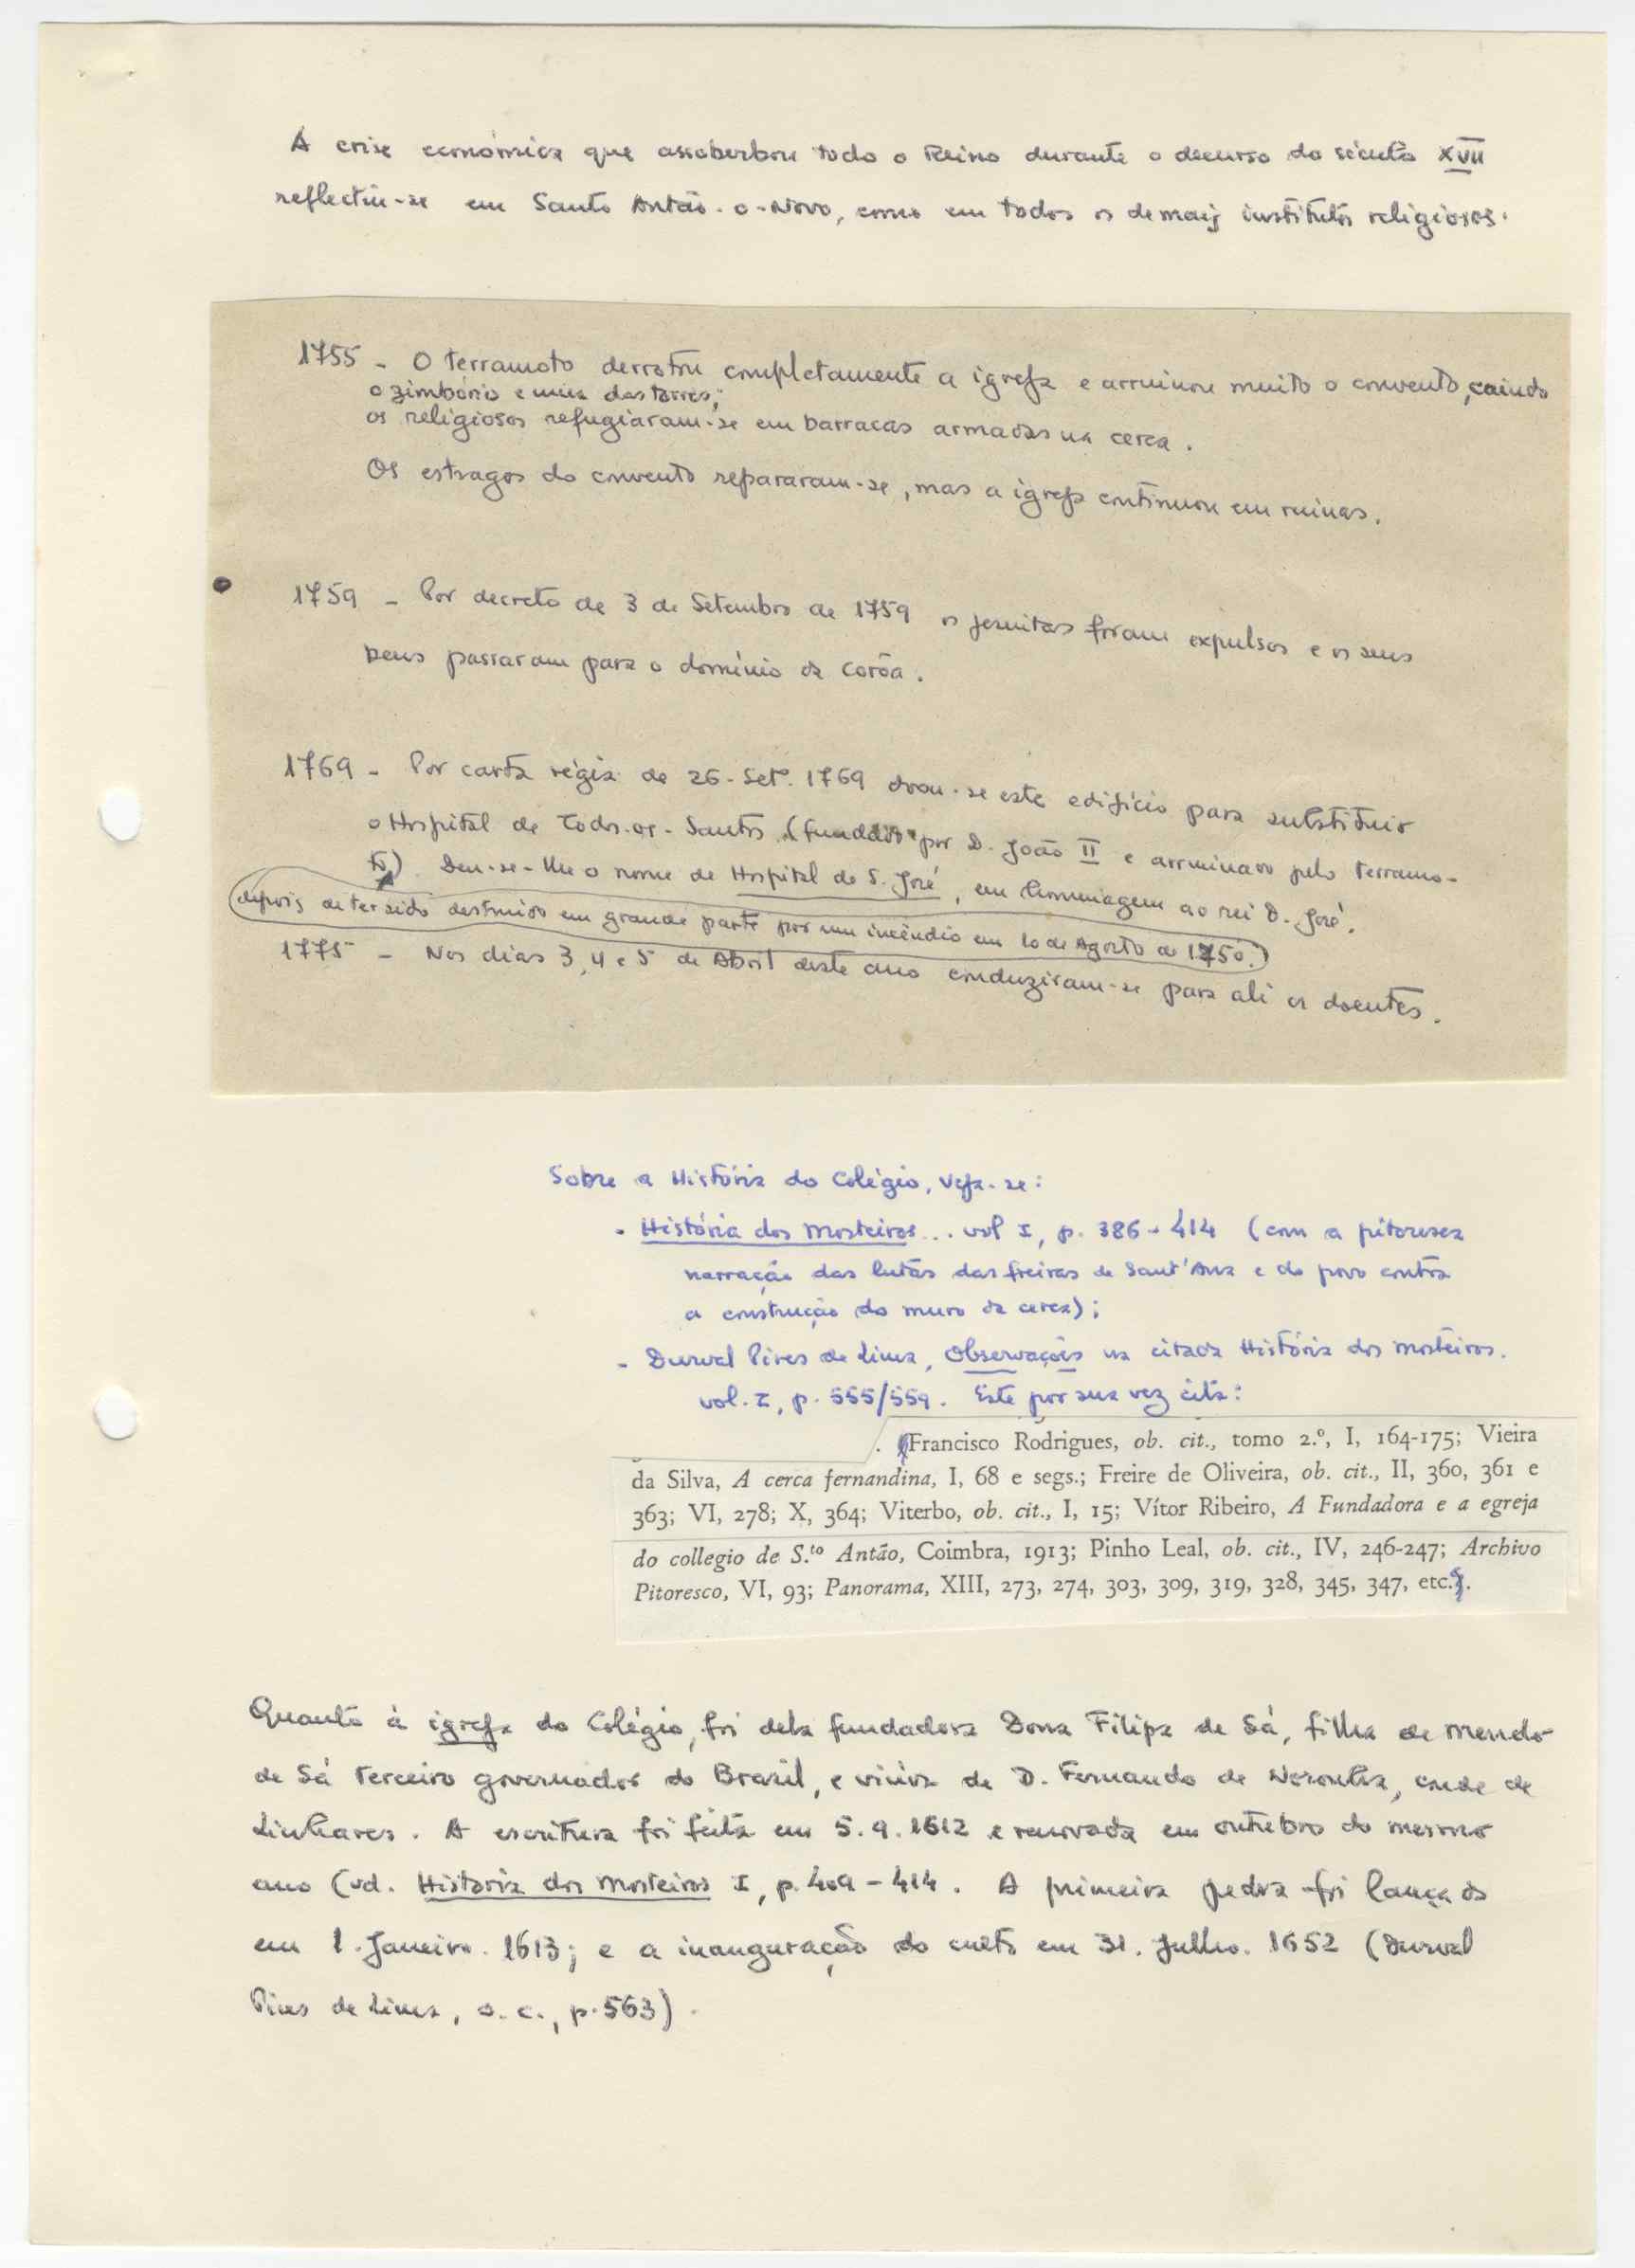 A crise económica que assoberbou todo o Reino durante o decurso do século XVII
reflectiu-se em Santo Antão-o-Novo, como em todos os demais institutos religiosos.
1755 - O terramoto derrotou completamente a igreja e arruinou muito o convento, caindo
o zimbório e uma das torres;
os religiosos refugiaram-se em barracas armadas na cerca.
Os estragos do convento repararam-se, mas a igreja continuou em ruinas.
1759 - Por decreto de 3 de Setembro de 1759 os jesuitas foram expulsos e os seus
bens passaram para o domínio da corôa.
1769 - Por carta régia de 26-Setº. 1769 doou-se este edifício para substituir
o Hospital de Todos-os-Santos (fundado por D. João II e arruinado pelo terramo-
to). Deu-se-lhe o nome de Hospital de S. José, em homenagem ao rei D. José.
depois de ter sido destruido em grande parte por um incêndio em 10 de Agosto de 1750.)
1775 - Nos dias 3, 4 e 5 de Abril deste ano conduziram-se para ali os doentes.
Sobre a História do Colégio, veja-se:
- História dos Mosteiros... vol I, p. 386-414 (com a pitoresca
narração das lutas das freiras de Sant'Ana e do povo contra
a construção do muro da cerca);
- Durval Pires de Lima, Observações na citada História dos Mosteiros.
vol. I, p. 555/559. Este por sua vez cita:
. Francisco Rodrigues, ob. cit., tomo 2.º, I, 164-175; Vieira
da Silva, A cerca fernandina, I, 68 e segs.; Freire de Oliveira, ob. cit., II, 360, 361 e
363; VI, 278; X, 364; Viterbo, ob. cit., I, 15; Vítor Ribeiro, A Fundadora e a egreja
do collegio de S.to Antão, Coimbra, 1913; Pinho Leal, ob. cit., IV, 246-247; Archivo
Pitoresco, VI, 93; Panorama, XIII, 273, 274, 303, 309, 319, 328, 345, 347, etc.
Quanto à igreja do Colégio, foi dela fundadora Dona Filipa de Sá, filha de Mendo
de Sá terceiro governador do Brasil, e viúva de D. Fernando de Noronha, conde de
Linhares. A escritura foi feita em 5.9.1612 e renovada em outubro do mesmo
ano (vd. Historia dos Mosteiros I, p. 409-414. A primeira pedra foi lançada
em 1. Janeiro. 1613; e a inauguração do culto em 31. Julho. 1652 (Durval
Pires de Lima, o. c., p. 563).